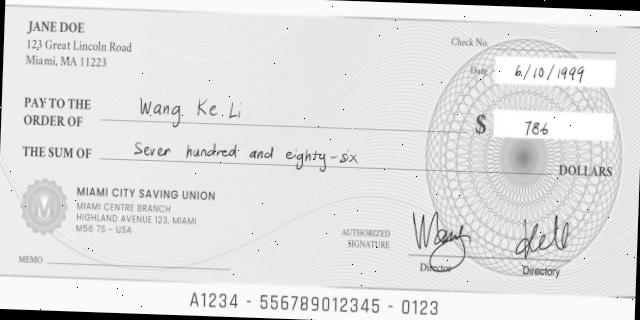 JANE DOE
123 Great Lincoln Road
Miami, MA 11223
Check No.
Date 6/10/1999
PAY TO THE ORDER OF Wang Ke Li
$ 786
THE SUM OF Seven hundred and eighty-six DOLLARS
M
MIAMI CITY SAVING UNION
MIAMI CENTRE BRANCH
HIGHLAND AVENUE 123, MIAMI
M56 7S - USA
AUTHORIZED SIGNATURE
Director
Directory
MEMO
A1234 - 556789012345 - 0123